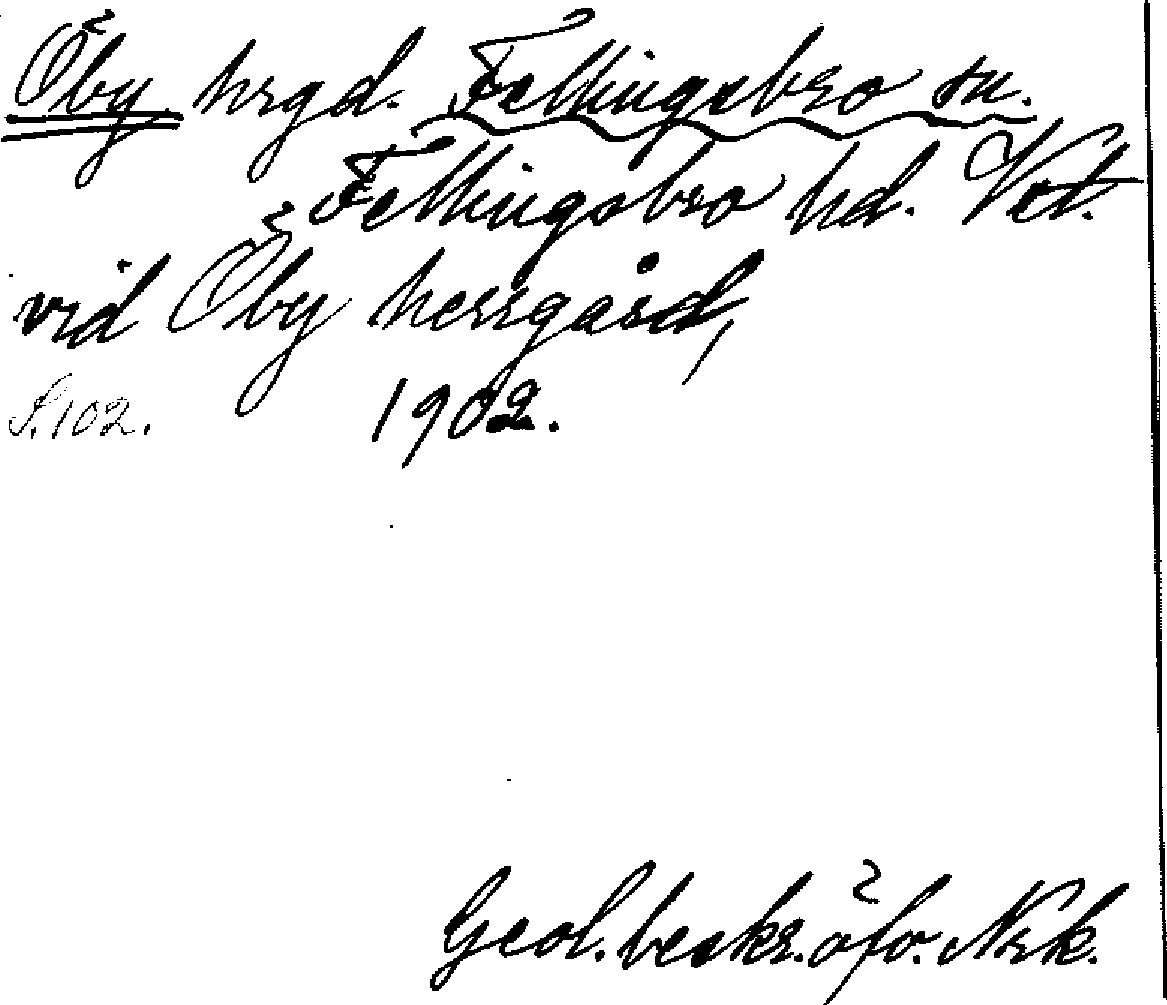 Öby hrgd. Fellingsbro sn.
Fellingsbro hd. Vst.
vid Öby herrgård,
S. 102. 1902.
Geol. beskr. öfv. Nrk.